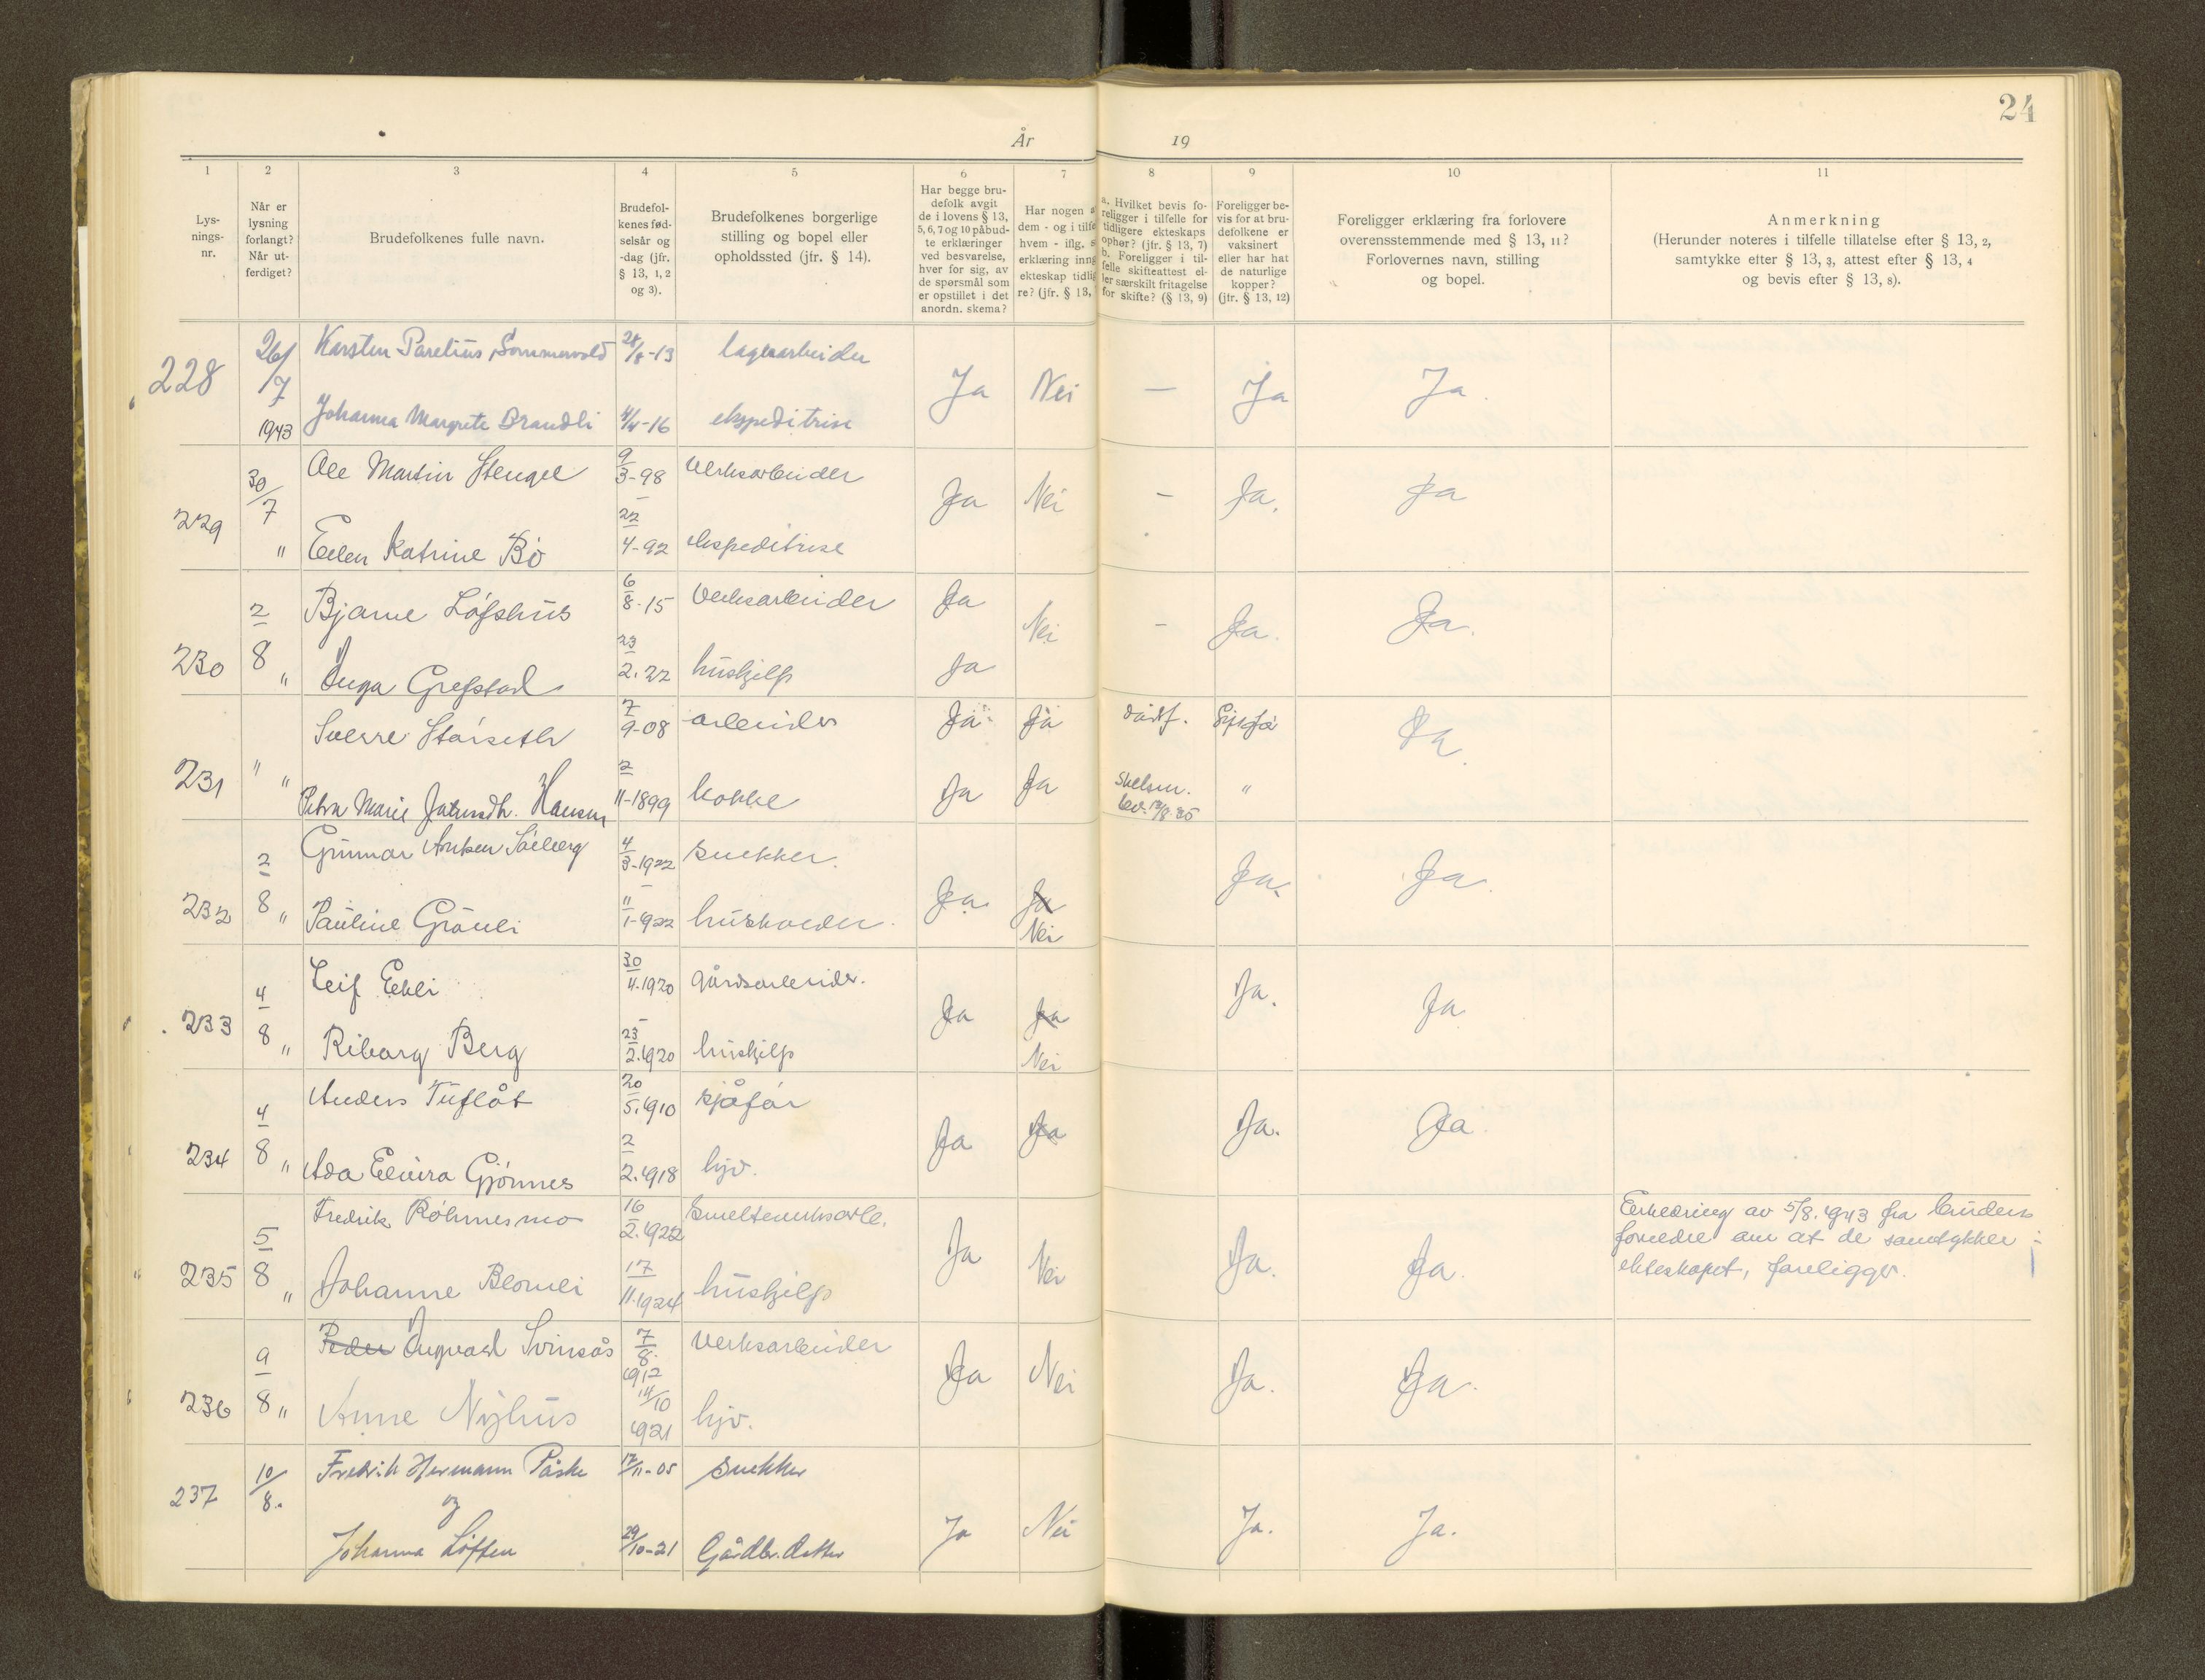 24
År 19
1 2 3 4 5 6 7 8 9 10 11
Lys-
nings-
nr.
Når er
lysning
forlangt?
Når ut-
ferdiget?
Brudefolkenes fulle navn.
Brudefol-
kenes fød-
selsår og
-dag (jfr.
§ 13, 1, 2
og 3).
Brudefolkenes borgerlige
stilling og bopel eller
opholdssted (jfr. § 14).
Har begge bru-
defolk avgit
de i lovens § 13,
5, 6, 7 og 10 påbud-
te erklæringer
ved besvarelse,
hver for sig, av
de spørsmål som
er opstillet i det
anordn. skema?
Har nogen a
dem - og i tilfe
hvem - iflg. s
erklæring inng
ekteskap tidlig
re? (jfr. § 13,
a. Hvilket bevis fo-
religger i tilfelle for
tidligere ekteskaps
ophør? (jfr. § 13, 7)
b. Foreligger i til-
felle skifteattest el-
ler særskilt fritagelse
for skifte? (§ 13, 9)
Foreligger be-
vis for at bru-
defolkene er
vaksinert
eller har hat
de naturlige
kopper?
(jfr. § 13, 12)
Foreligger erklæring fra forlovere
overensstemmende med § 13, 11?
Forlovernes navn, stilling
og bopel.
Anmerkning
(Herunder noteres i tilfelle tillatelse efter § 13, 2,
samtykke efter § 13, 3, attest efter § 13, 4
og bevis efter § 13, 8).
228 26/7 1943 Karsten Parelius Sommervold 28/8-13 lagerarbeider Ja Nei — Ja Ja.
Johanna Margrete Brandli 4/4-16 ekspeditrise
229 30/7 " Ole Martin Stengel 9/3-98 verksarbeider Ja Nei - Ja. Ja
Ellen Katrine Bö 22/4-92 ekspeditrise
230 2/8 " Bjarne Löfshus 6/8-15 verksarbeider Ja Nei - Ja. Ja.
Inga Grefstad 23/2.22 hushjelp Ja
231 " " Sverre Störseth 7/9-08 arbeider Ja Ja Ja.
Petra Marie Hansen 2/11-1899 kokke Ja Ja "
232 2/8 " Gunnar Söberg 4/3-1922 snekker. Ja. Ja Nei Ja. Ja.
Pauline Grönli 11/1-1922
233 4/8 " Leif Eekli 30/4.1920 gårdsarbeider. Ja Ja Nei Ja. Ja
Riborg Berg 23/2.1920 hushjelp
234 4/8 " Anders Tuflåt 20/5.1910 sjåför Ja Ja Ja. Ja.
Ada Elvira Gjönnes 2/2.1918 hjv.
235 5/8 " Fredrik Röhmesmo 16/2.1922 Smelteverksarb. Ja Nei Ja. Ja. Erklæring av 5/8.1943 fra brudens
foreldre om at de samtykker i
ekteskapet, foreligger.
Johanne Blomli 17/11.1924 hushjelp
236 9/8 " Peder Ingvald Svinsås 7/8. 1912 verksarbeider Ja Nei Ja. Ja.
Anne Nyhus 14/10 1921 hjv.
237 10/8. Fredrik Hermann Påske 17/11-05 snekker Ja Nei Ja. Ja.
og
Johanna Löften 29/10-21 Gårdbr. datter